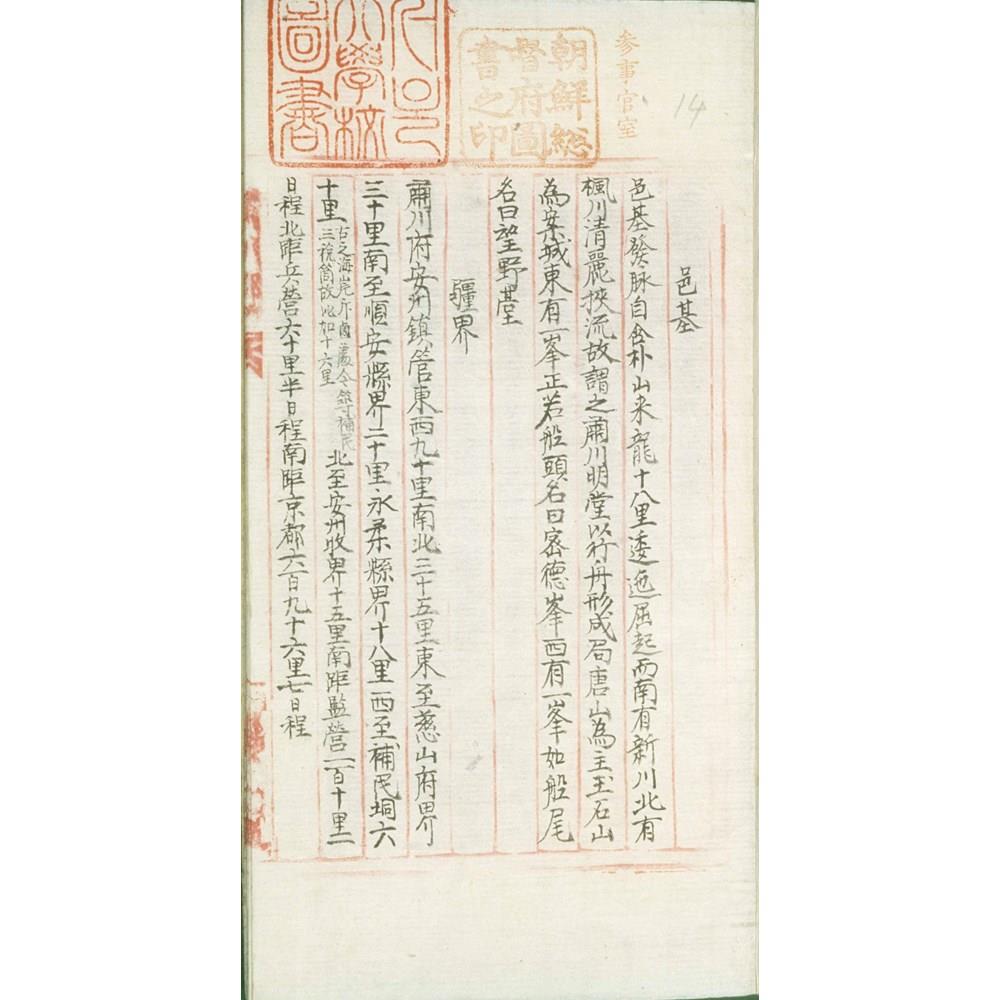 参事官室
14
朝鮮総督府圖書之印
大學校圖書
邑基
邑基發脉自含朴山来龍十八里逶迤屈起而南有新川北有
楓川清麗挾流故謂之肅川明堂以行舟形成局唐山為主玉石山
為案城東有一峯正若船頭名曰密德峯西有一峯如船尾
名曰望野臺
疆界
肅川府安州鎮管東西九十里南北三十五里東至慈山府界
三十里南至順安縣界二十里永柔縣界十八里西至補民垌六
十里
古之海岸斥鹵處今築補民
三稅筒故此加十六里
北至安州牧界十五里南距監營一百十里一
日程北距兵營六十里半日程南距京都六百九十六里七日程